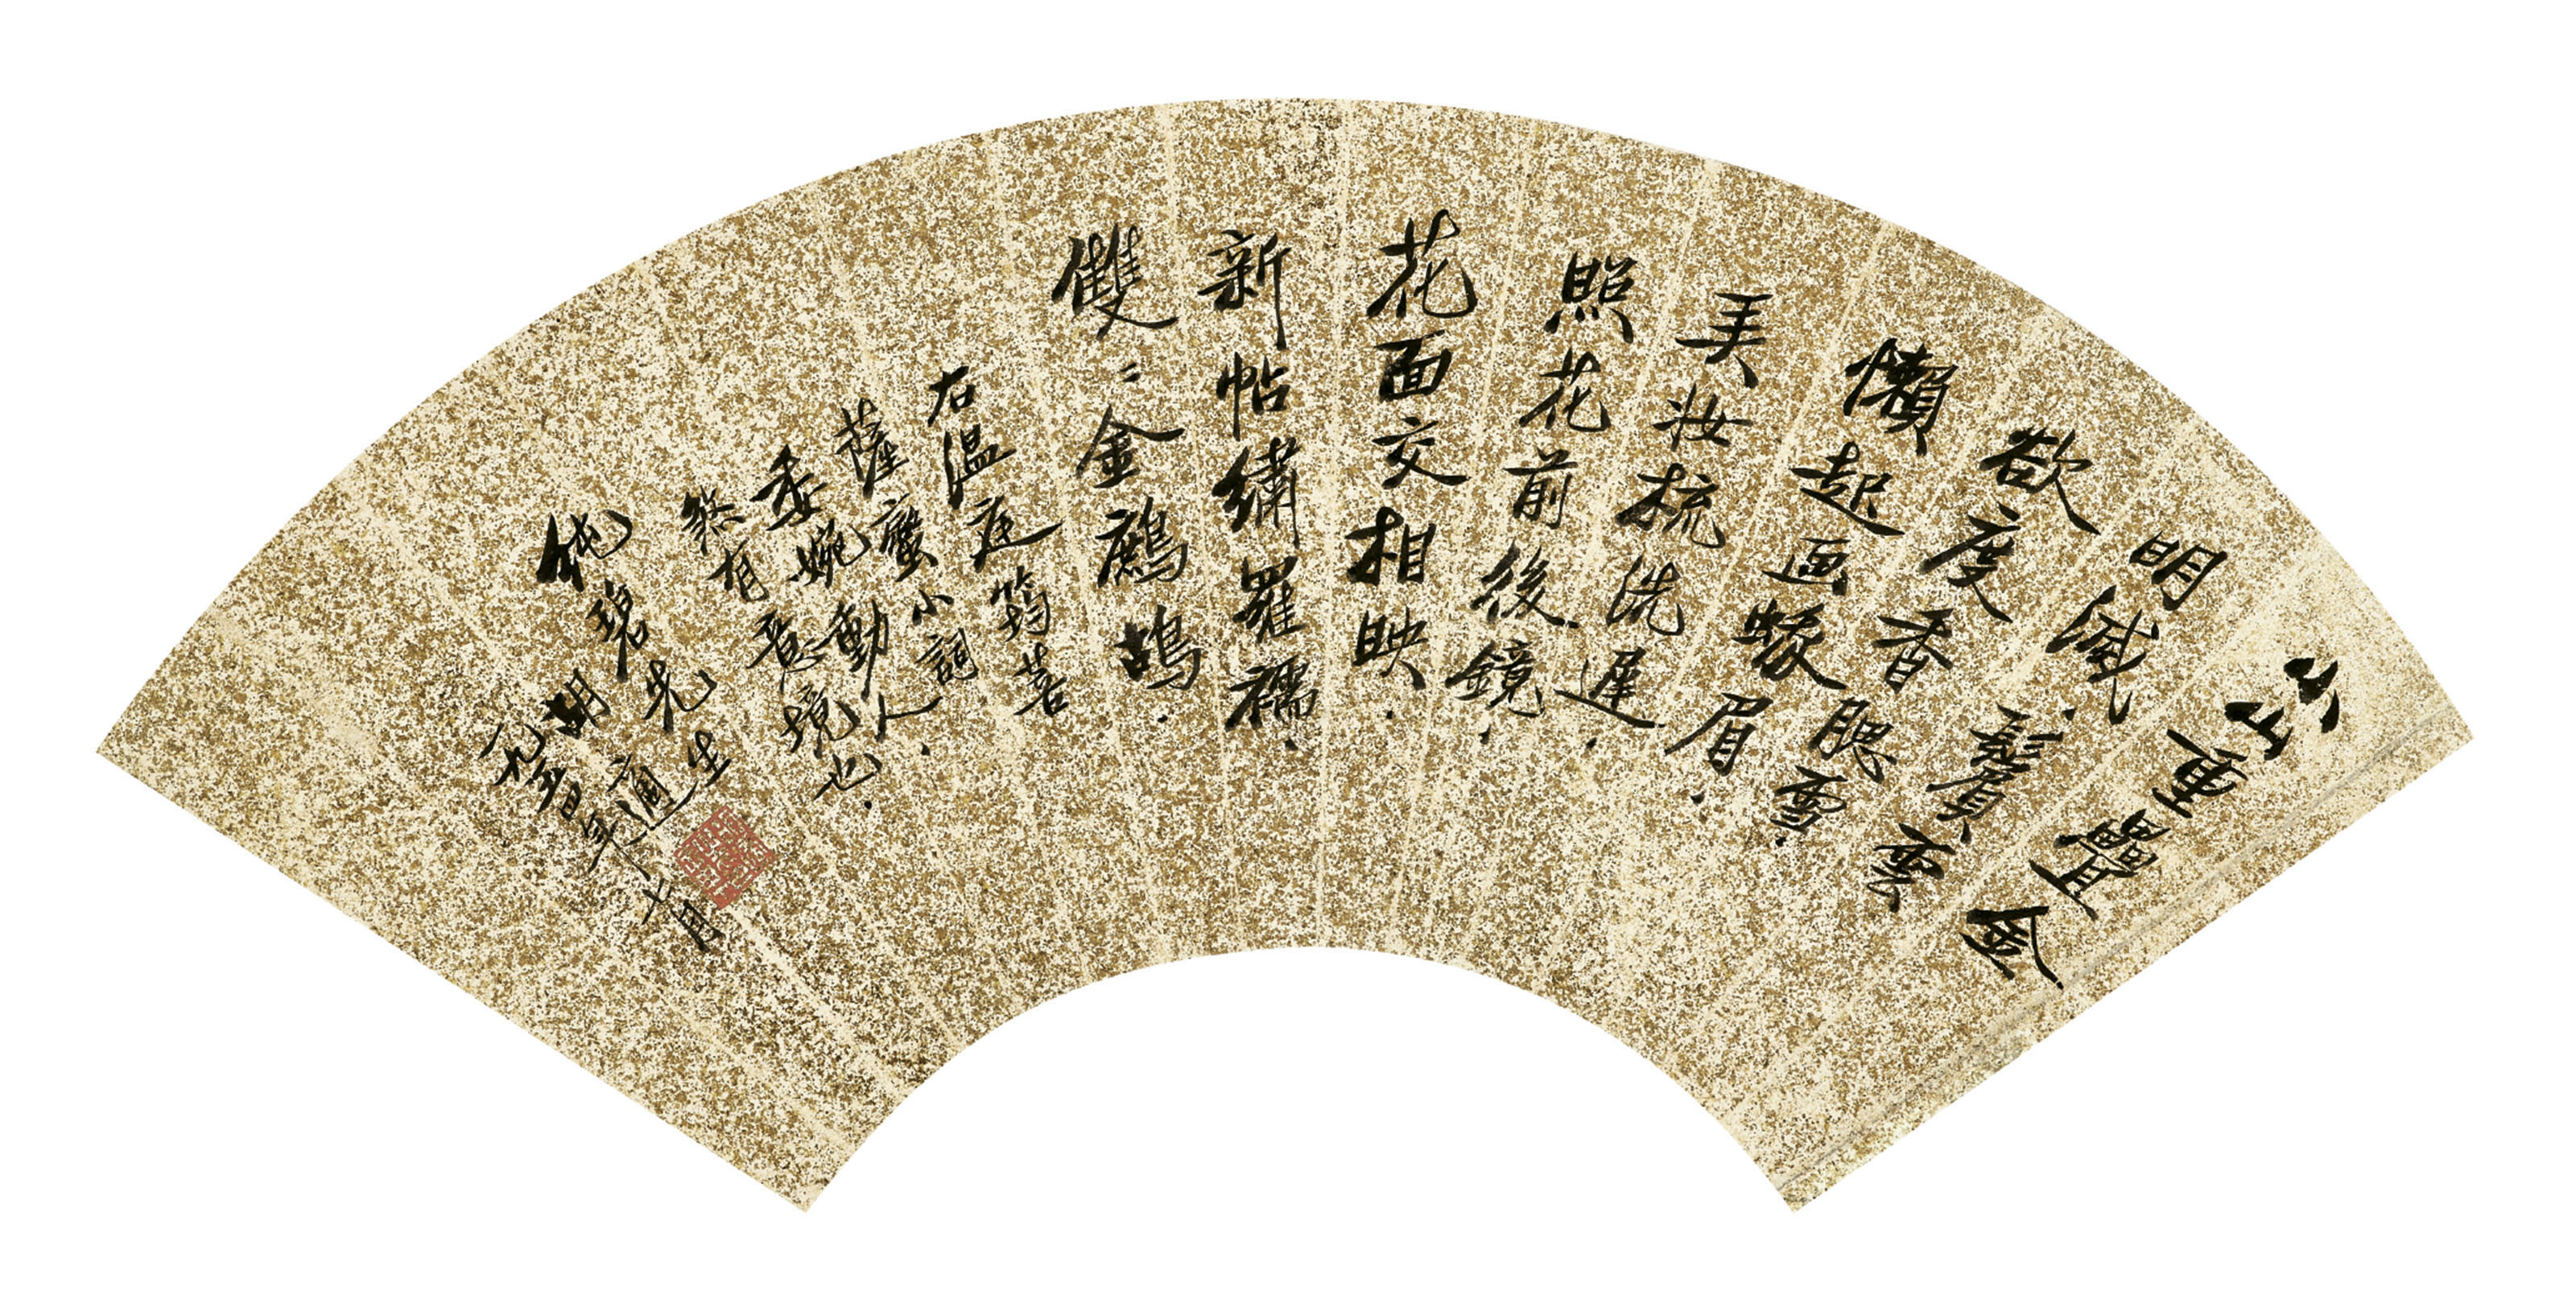 小山重疊金
明滅．鬢雲
欲度香腮雪．
懶起画蛾眉．
弄妝梳洗遲．
照花前後鏡．
花面交相映．
新帖繡羅襦．
雙〻金鷓鴣．
右溫庭筠菩
薩蠻小詞．
委婉動人．
煞有意境也．
碧先生
胡適
年 月